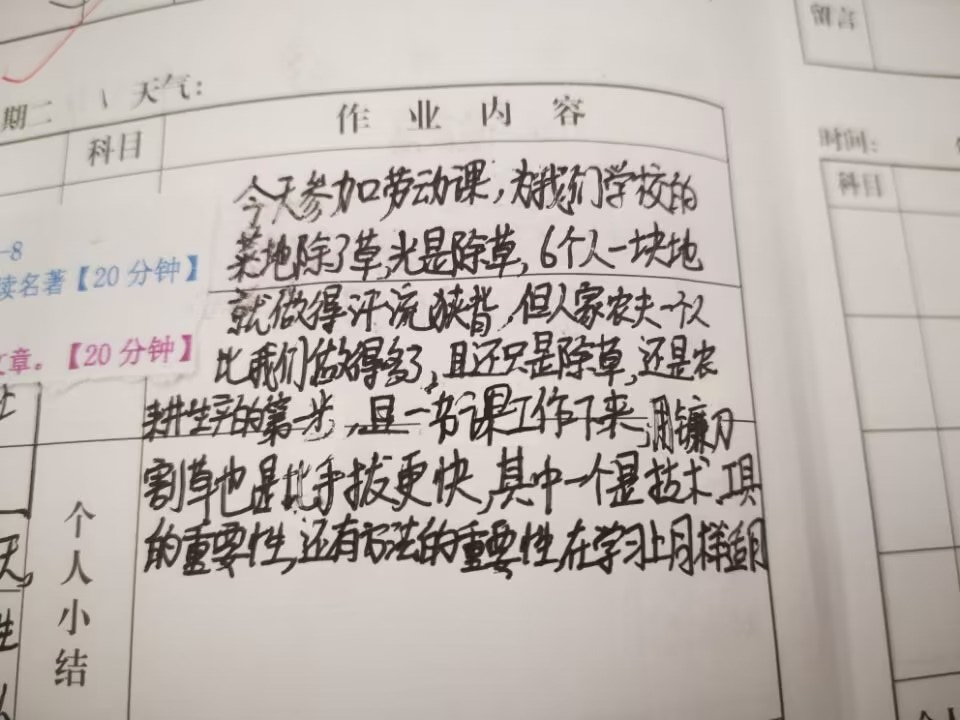 留言
期二 \ 天气:
时间:
科目 作业内容
科目
今天参加劳动课,为我们学校的
菜地除了草,光是除草,6个人一块地
-8
读名著【20分钟】
就做得汗流狭背,但人家农夫一个人
比我们做得多了,且还只是除草,还是农
文章。【20分钟】
耕生产的第一步,且一节课工作下来,用镰刀
割草也是比手拔更快,其中一个是技术、工具
的重要性,还有方法的重要性,在学习上同样适用
个人小结
天。
生